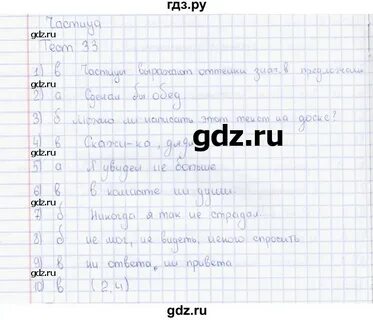 гдз.ру
Частица
Тест 33
1) в Частицы выражают оттенки знач. в предложении
2) а Сделал бы обед.
3) б Можно ли написать этот текст на доске?
4) в Скажи-ка, дядя
5) а Я увидел не больше
6) в в комнате ни души.
7) б Никогда я так не страдал.
8) б не мог, не видеть, некого спросить
9) в ни ответа, ни привета
10) в (2,4)
gdz.ru
gdz.ru
gdz.ru